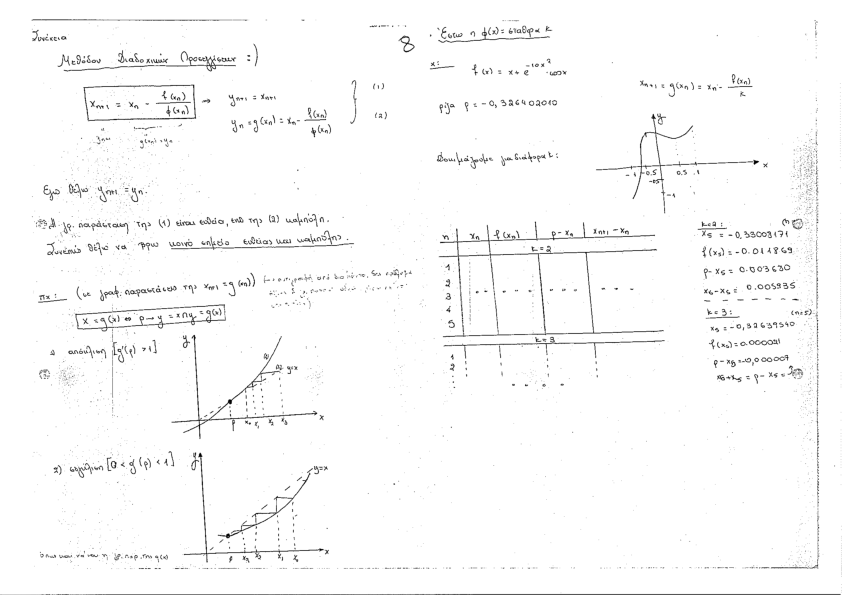 Συνέχεια
Μεθόδου Διαδοχικών Προσεγγίσεων :)
x_{n+1} = x_n - f(x_n)/φ(x_n) ⇒ y_{n+1} = x_{n+1} (1)
y_n = g(x_n) = x_n - f(x_n)/φ(x_n) (2)
g(x_n) = y_n
Εγω θέλω y_{n+1} = y_n.
Η γρ. παράσταση της (1) είναι ευθεία, ενώ της (2) καμπύλη.
Συνεπώς θέλω να βρω κοινό σημείο ευθείας και καμπύλης.
πχ: (σε γραφ. παραστάσεις της x_{n+1} = g(x_n))
x = g(x) ⇔ ρ → y = x ∩ y = g(x)
1 απόκλιση [g'(ρ) > 1]
y
y=x
ρ x_0 x_1 x_2 x_3 x
2) σύγκλιση [0 < g'(ρ) < 1]
y
y=x
x
όπως και να'ναι η γρ. παρ. της g(x)
8
Έστω η φ(x) = σταθερα k
x:
f(x) = x + e^{-10x^2} cosx
x_{n+1} = g(x_n) = x_n - f(x_n)/k
ρίζα ρ = -0,326402010
Δοκιμάζουμε για διάφορα k:
y
-1 -0.5 0.5 1 x
-0.5
-1
n x_n f(x_n) ρ-x_n x_{n+1}-x_n
k=2
1
2
3
4
5
k=3
1
2
k=2:
x_5 = -0,33003171
f(x_5) = -0.011869
ρ-x_5 = 0.003630
x_6-x_5 = 0.005935
k=3: (n=5)
x_5 = -0,32639540
f(x_5) = 0.000021
ρ-x_5 = -0,000007